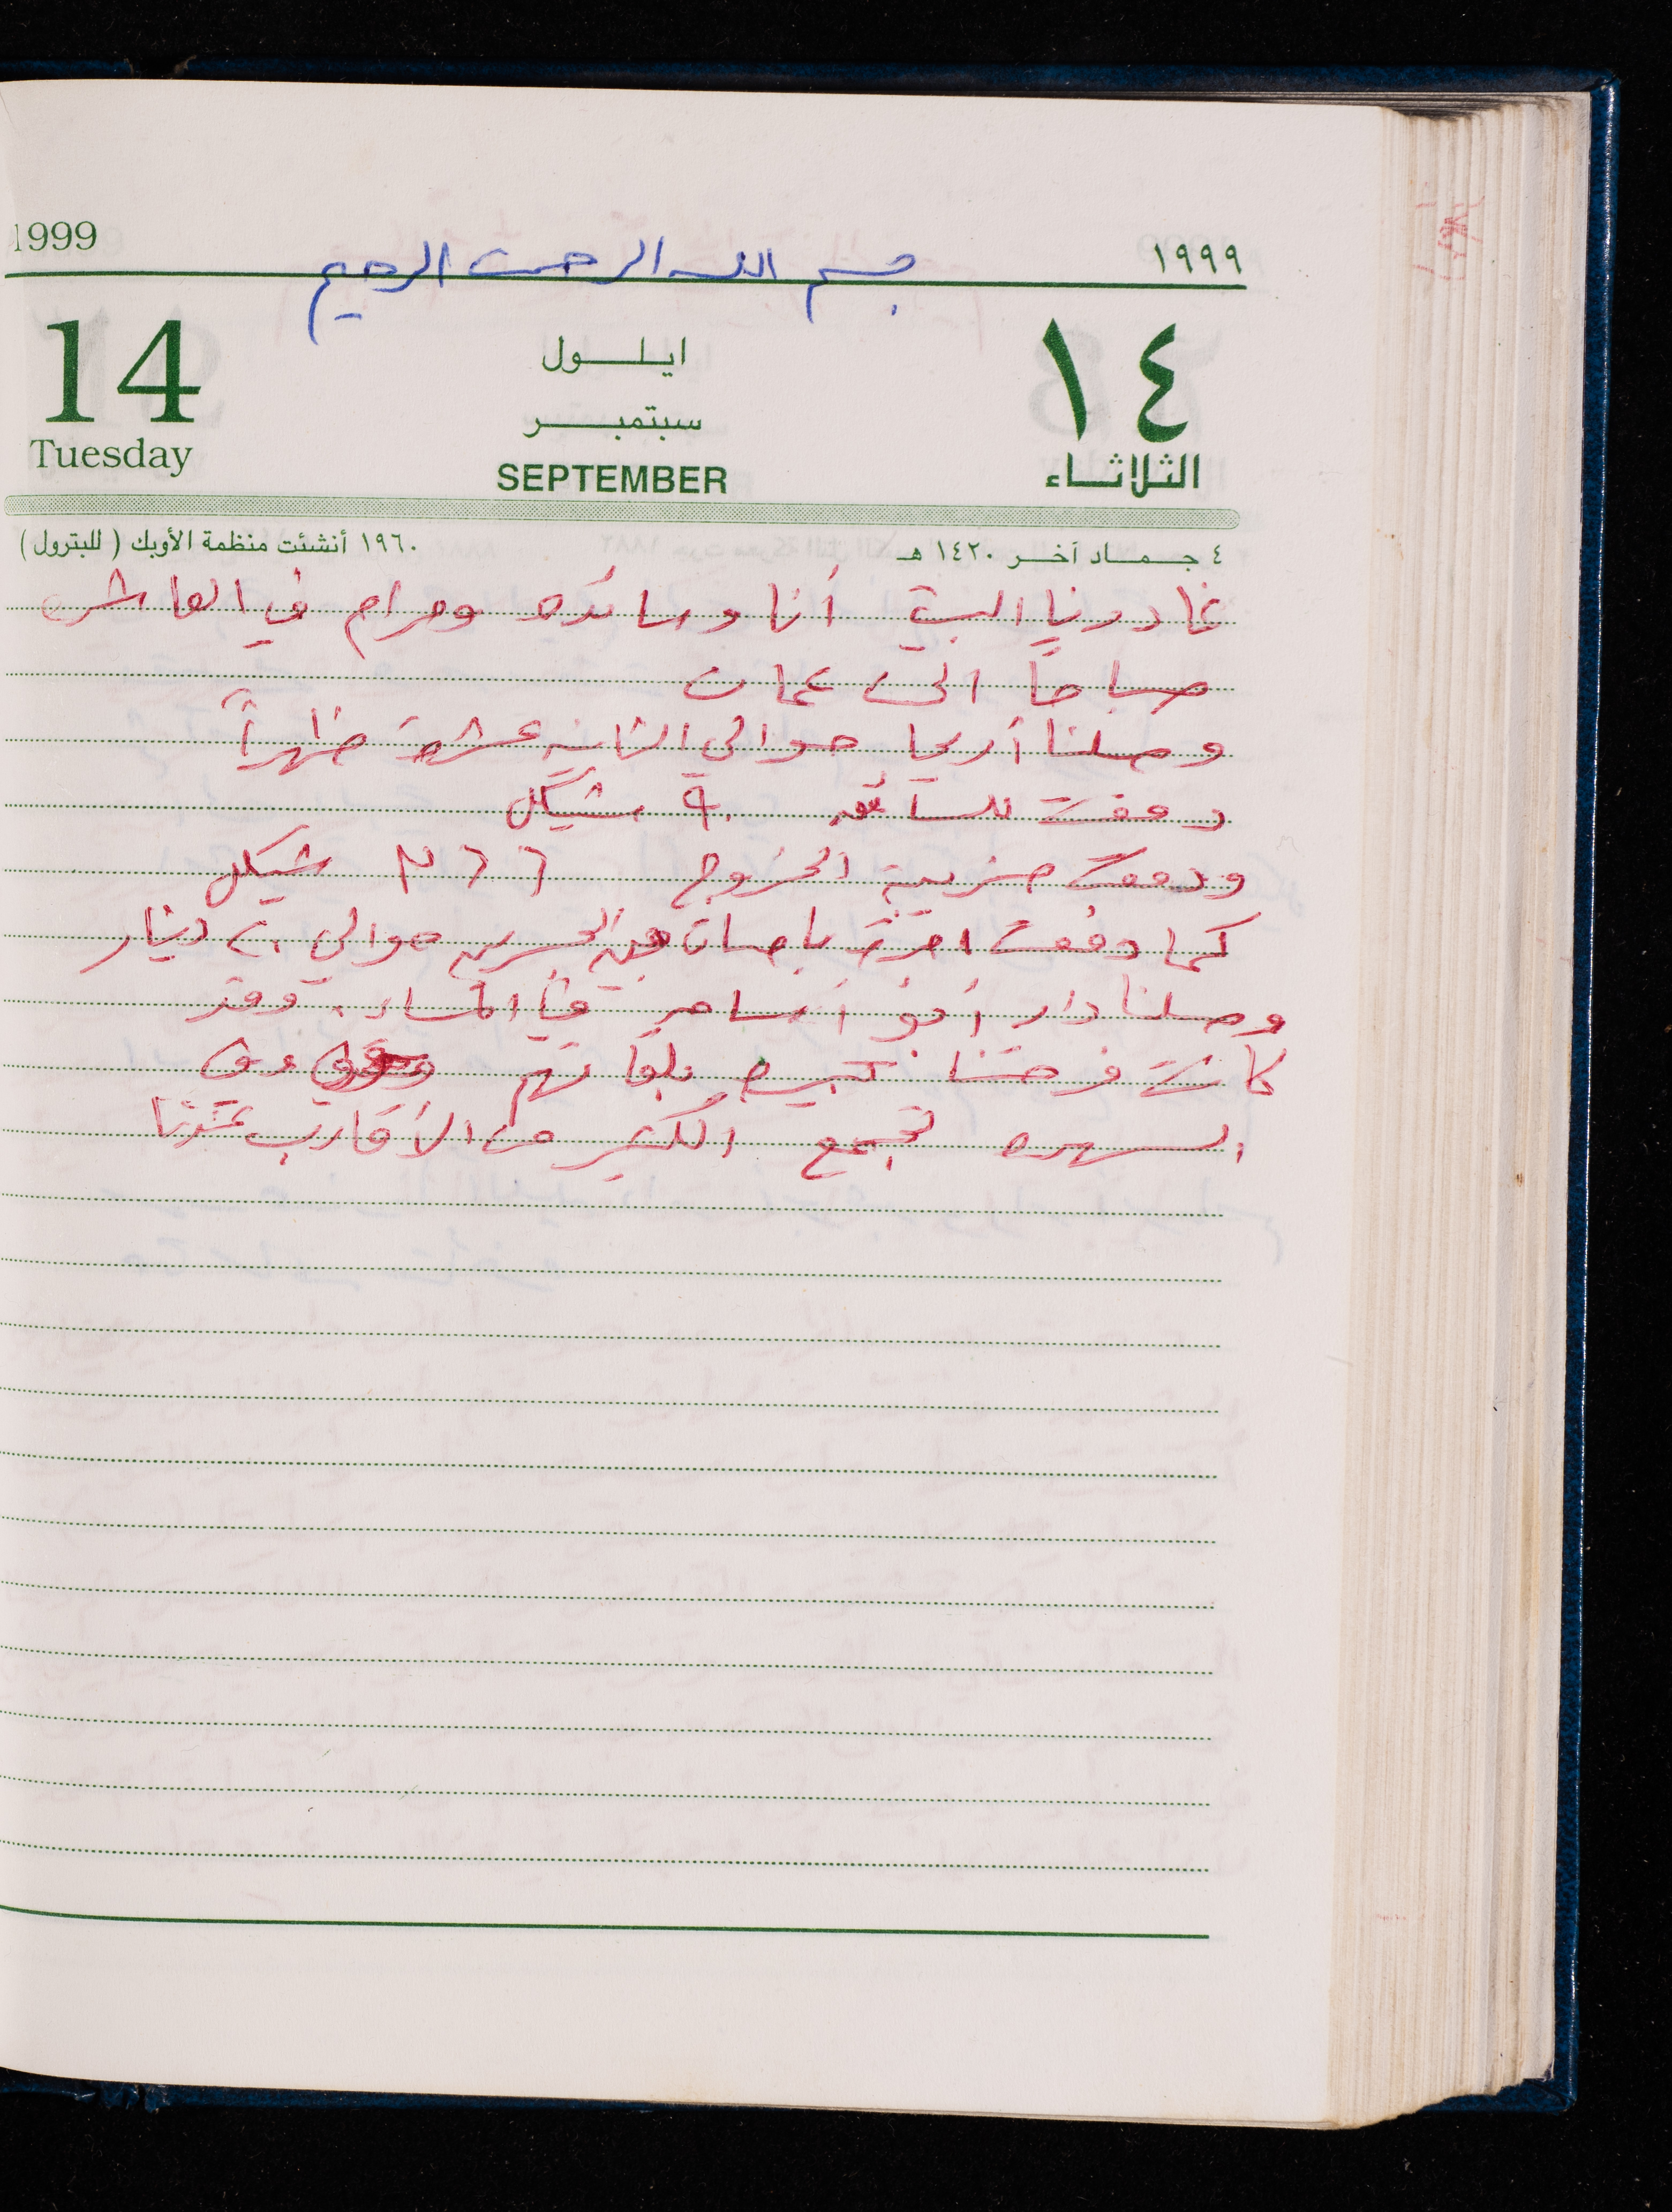 1999 ١٩٩٩
بسم الله الرحمن الرحيم
14 ايلول ١٤
سبتمبر
Tuesday SEPTEMBER الثلاثاء
٤ جماد آخر ١٤٢٠ هـ ١٩٦٠ أنشئت منظمة الأوبك ( للبترول )
غادرنا البيت أنا ورائده ومرام في العاشره
صباحاً الى عمان
وصلنا أريحا حوالي الثانيه عشرة ظهراً
دفعت للسائق ٩٠ شيكل
ودفعت ضريبة الخروج شيكل
كما دفعت اجرة باصات الجسرين حوالي ٢٠ دينار
وصلنا دار أبو أسامه في المساء. وقد
كانت فرحتنا كبيره بلقائهم وفي
السهره تجمع الكثير من الأقارب عندنا